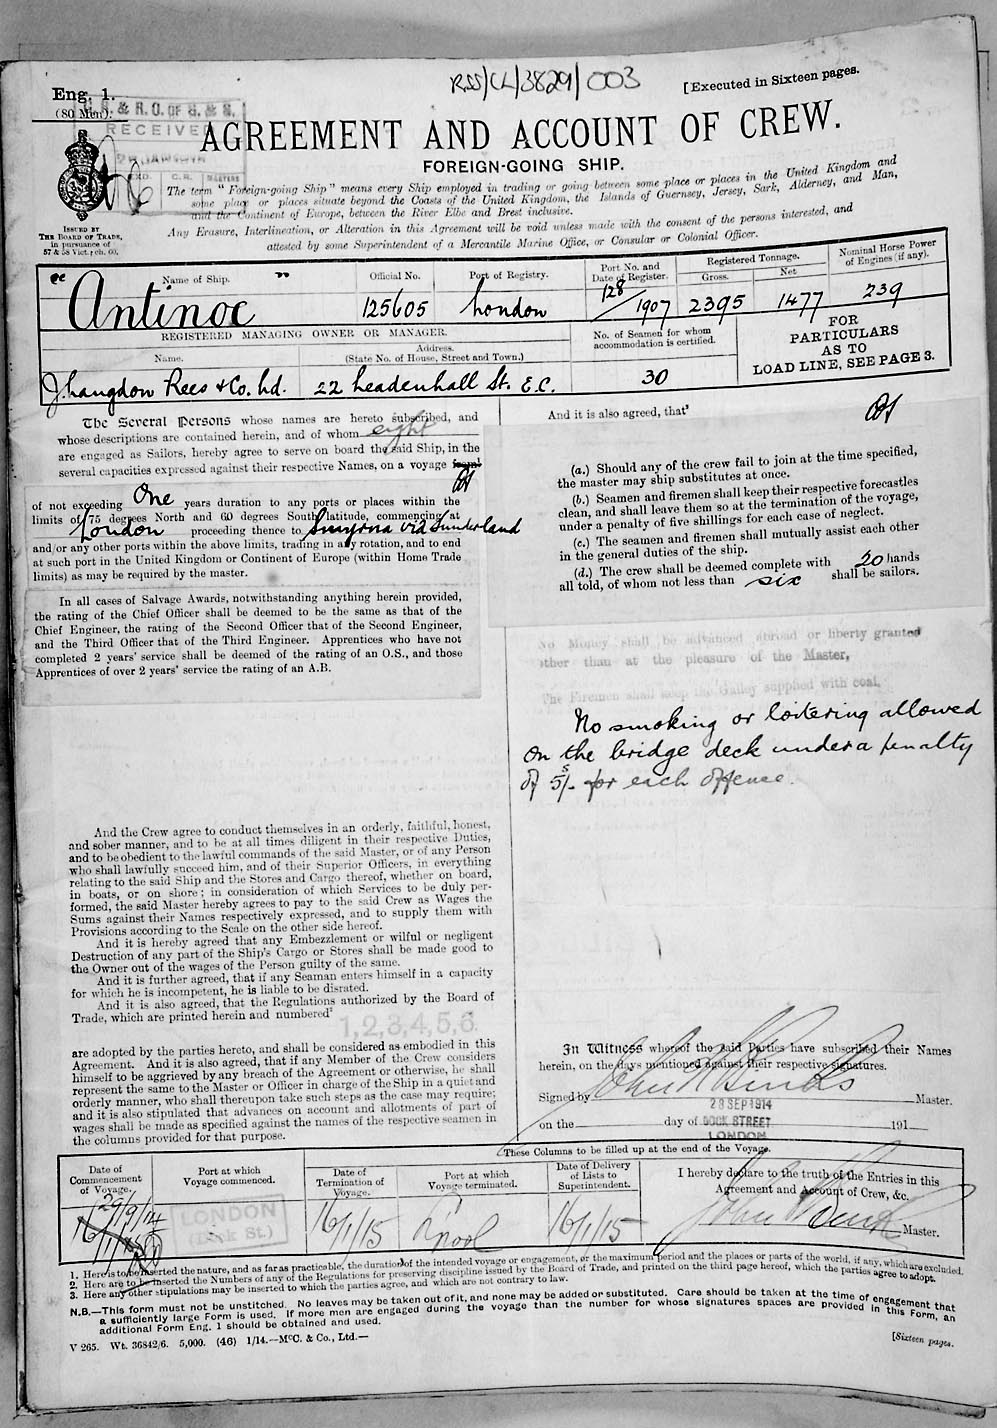 RSS/CL/3829/003
[Executed in Sixteen pages.
Eng. 1.
(80 Men).
RECEIVED
AGREEMENT AND ACCOUNT OF CREW.
FOREIGN-GOING SHIP.
The term "Foreign-going Ship" means every Ship employed in trading or going between some place or places in the United Kingdom and
some place or places situate beyond the Coasts of the United Kingdom, the Islands of Guernsey, Jersey, Sark, Alderney, and Man,
and the Continent of Europe, between the River Elbe and Brest inclusive.
Any Erasure, Interlineation, or Alteration in this Agreement will be void unless made with the consent of the persons interested, and
attested by some Superintendent of a Mercantile Marine Office, or Consular or Colonial Officer.
ISSUED BY
THE BOARD OF TRADE,
in pursuance of
57 & 58 Vict.; ch. 60.
Name of Ship.
Official No.
Port of Registry.
Port No. and
Date of Register.
Registered Tonnage.
Gross.
Net
Nominal Horse Power
of Engines (if any).
"Antinoe"
125605
London
128/1907
2395
1477
239
REGISTERED MANAGING OWNER OR MANAGER.
Name.
Address.
(State No. of House, Street and Town.)
No. of Seamen for whom
accommodation is certified.
FOR
PARTICULARS
AS TO
LOAD LINE, SEE PAGE 3.
J. Langdon Rees & Co. Ld.
22 Leadenhall St. E.C.
30
The Several Persons whose names are hereto subscribed, and
whose descriptions are contained herein, and of whom eight
are engaged as Sailors, hereby agree to serve on board the said Ship, in the
several capacities expressed against their respective Names, on a voyage from
of not exceeding One years duration to any ports or places within the
limits of 75 degrees North and 60 degrees South latitude, commencing at
London proceeding thence to Smyrna via Sunderland
and/or any other ports within the above limits, trading in any rotation, and to end
at such port in the United Kingdom or Continent of Europe (within Home Trade
limits) as may be required by the master.
In all cases of Salvage Awards, notwithstanding anything herein provided,
the rating of the Chief Officer shall be deemed to be the same as that of the
Chief Engineer, the rating of the Second Officer that of the Second Engineer,
and the Third Officer that of the Third Engineer. Apprentices who have not
completed 2 years' service shall be deemed of the rating of an O.S., and those
Apprentices of over 2 years' service the rating of an A.B.
And the Crew agree to conduct themselves in an orderly, faithful, honest,
and sober manner, and to be at all times diligent in their respective Duties,
and to be obedient to the lawful commands of the said Master, or of any Person
who shall lawfully succeed him, and of their Superior Officers, in everything
relating to the said Ship and the Stores and Cargo thereof, whether on board,
in boats, or on shore; in consideration of which Services to be duly per-
formed, the said Master hereby agrees to pay to the said Crew as Wages the
Sums against their Names respectively expressed, and to supply them with
Provisions according to the Scale on the other side hereof.
And it is hereby agreed that any Embezzlement or wilful or negligent
Destruction of any part of the Ship's Cargo or Stores shall be made good to
the Owner out of the wages of the Person guilty of the same.
And it is further agreed, that if any Seaman enters himself in a capacity
for which he is incompetent, he is liable to be disrated.
And it is also agreed, that the Regulations authorized by the Board of
Trade, which are printed herein and numbered²
1,2,3,4,5,6.
are adopted by the parties hereto, and shall be considered as embodied in this
Agreement. And it is also agreed, that if any Member of the Crew considers
himself to be aggrieved by any breach of the Agreement or otherwise, he shall
represent the same to the Master or Officer in charge of the Ship in a quiet and
orderly manner, who shall thereupon take such steps as the case may require;
and it is also stipulated that advances on account and allotments of part of
wages shall be made as specified against the names of the respective seamen in
the columns provided for that purpose.
And it is also agreed, that³
(a.) Should any of the crew fail to join at the time specified,
the master may ship substitutes at once.
(b.) Seamen and firemen shall keep their respective forecastles
clean, and shall leave them so at the termination of the voyage,
under a penalty of five shillings for each case of neglect.
(c.) The seamen and firemen shall mutually assist each other
in the general duties of the ship.
(d.) The crew shall be deemed complete with 20 hands
all told, of whom not less than six shall be sailors.
No Money shall be advanced abroad or liberty granted
other than at the pleasure of the Master,
The Firemen shall keep the Galley supplied with coal.
No smoking or loitering allowed
on the bridge deck under a penalty
of 5s/- for each offence.
In Witness whereof the said Parties have subscribed their Names
herein, on the days mentioned against their respective signatures.
Signed by Master.
28 SEP 1914
on the day of DOCK STREET 191
LONDON
These Columns to be filled up at the end of the Voyage.
Date of
Commencement
of Voyage.
Port at which
Voyage commenced.
Date of
Termination of
Voyage.
Port at which
Voyage terminated.
Date of Delivery
of Lists to
Superintendent.
I hereby declare to the truth of the Entries in this
Agreement and Account of Crew, &c.
29/9/14
LONDON
(Dock St.)
16/1/15
L'pool
16/1/15
Master.
1. Here is to be inserted the nature, and as far as practicable, the duration of the intended voyage or engagement, or the maximum period and the places or parts of the world, if any, which are excluded.
2. Here are to be inserted the Numbers of any of the Regulations for preserving discipline issued by the Board of Trade, and printed on the third page hereof, which the parties agree to adopt.
3. Here any other stipulations may be inserted to which the parties agree, and which are not contrary to law.
N.B.—This form must not be unstitched. No leaves may be taken out of it, and none may be added or substituted. Care should be taken at the time of engagement that
a sufficiently large Form is used. If more men are engaged during the voyage than the number for whose signatures spaces are provided in this Form, an
additional Form Eng. 1 should be obtained and used.
V 265. Wt. 36842/6. 5,000. (46) 1/14.—McC. & Co., Ltd.—
[Sixteen pages.